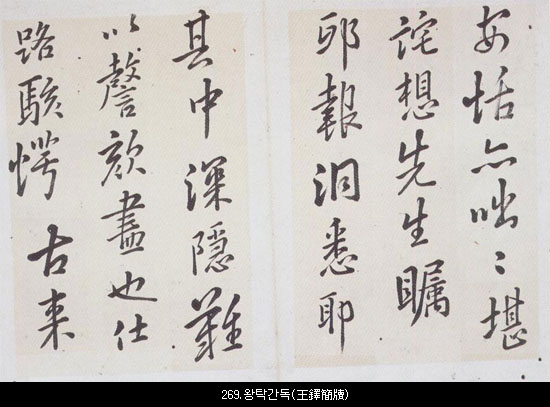 安恬亦咄〻堪
詫想先生矚
邸報洞悉耶
其中深隱難
以謦欬盡也仕
路駭愕古来
269.왕탁간독(王鐸簡牘)